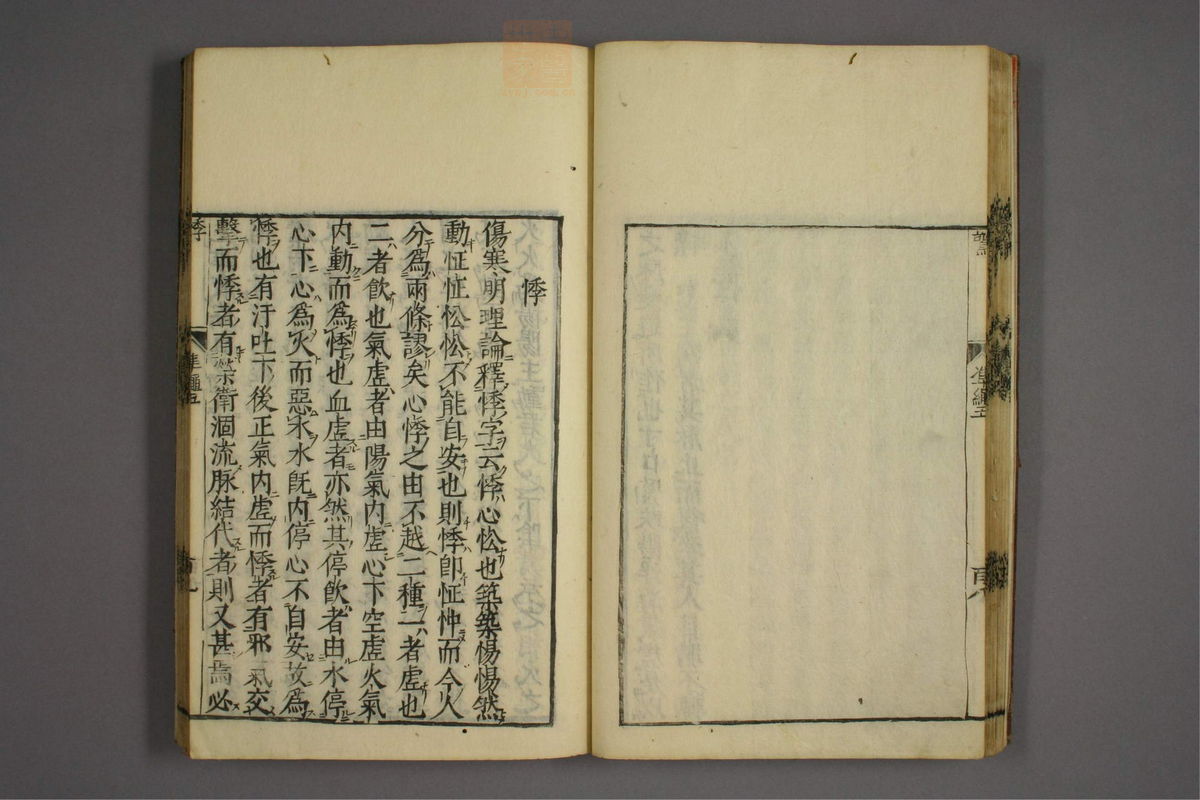 悸
傷寒明理論釋悸字云悸心忪也築築惕惕然
動怔怔忪忪不能自安也則悸卽怔忡而今人
分爲兩條謬矣心悸之由不越二種一者虛也
二者飮也氣虛者由陽氣內虛心下空虛火氣
內動而爲悸也血虛者亦然其停飮者由水停
心下心爲火而惡水水旣內停心不自安故爲
悸也有汙吐下後正氣內虛而悸者有邪氣交
擊而悸者有榮衛涸流脉結代者則又甚焉必
悸
準繩五